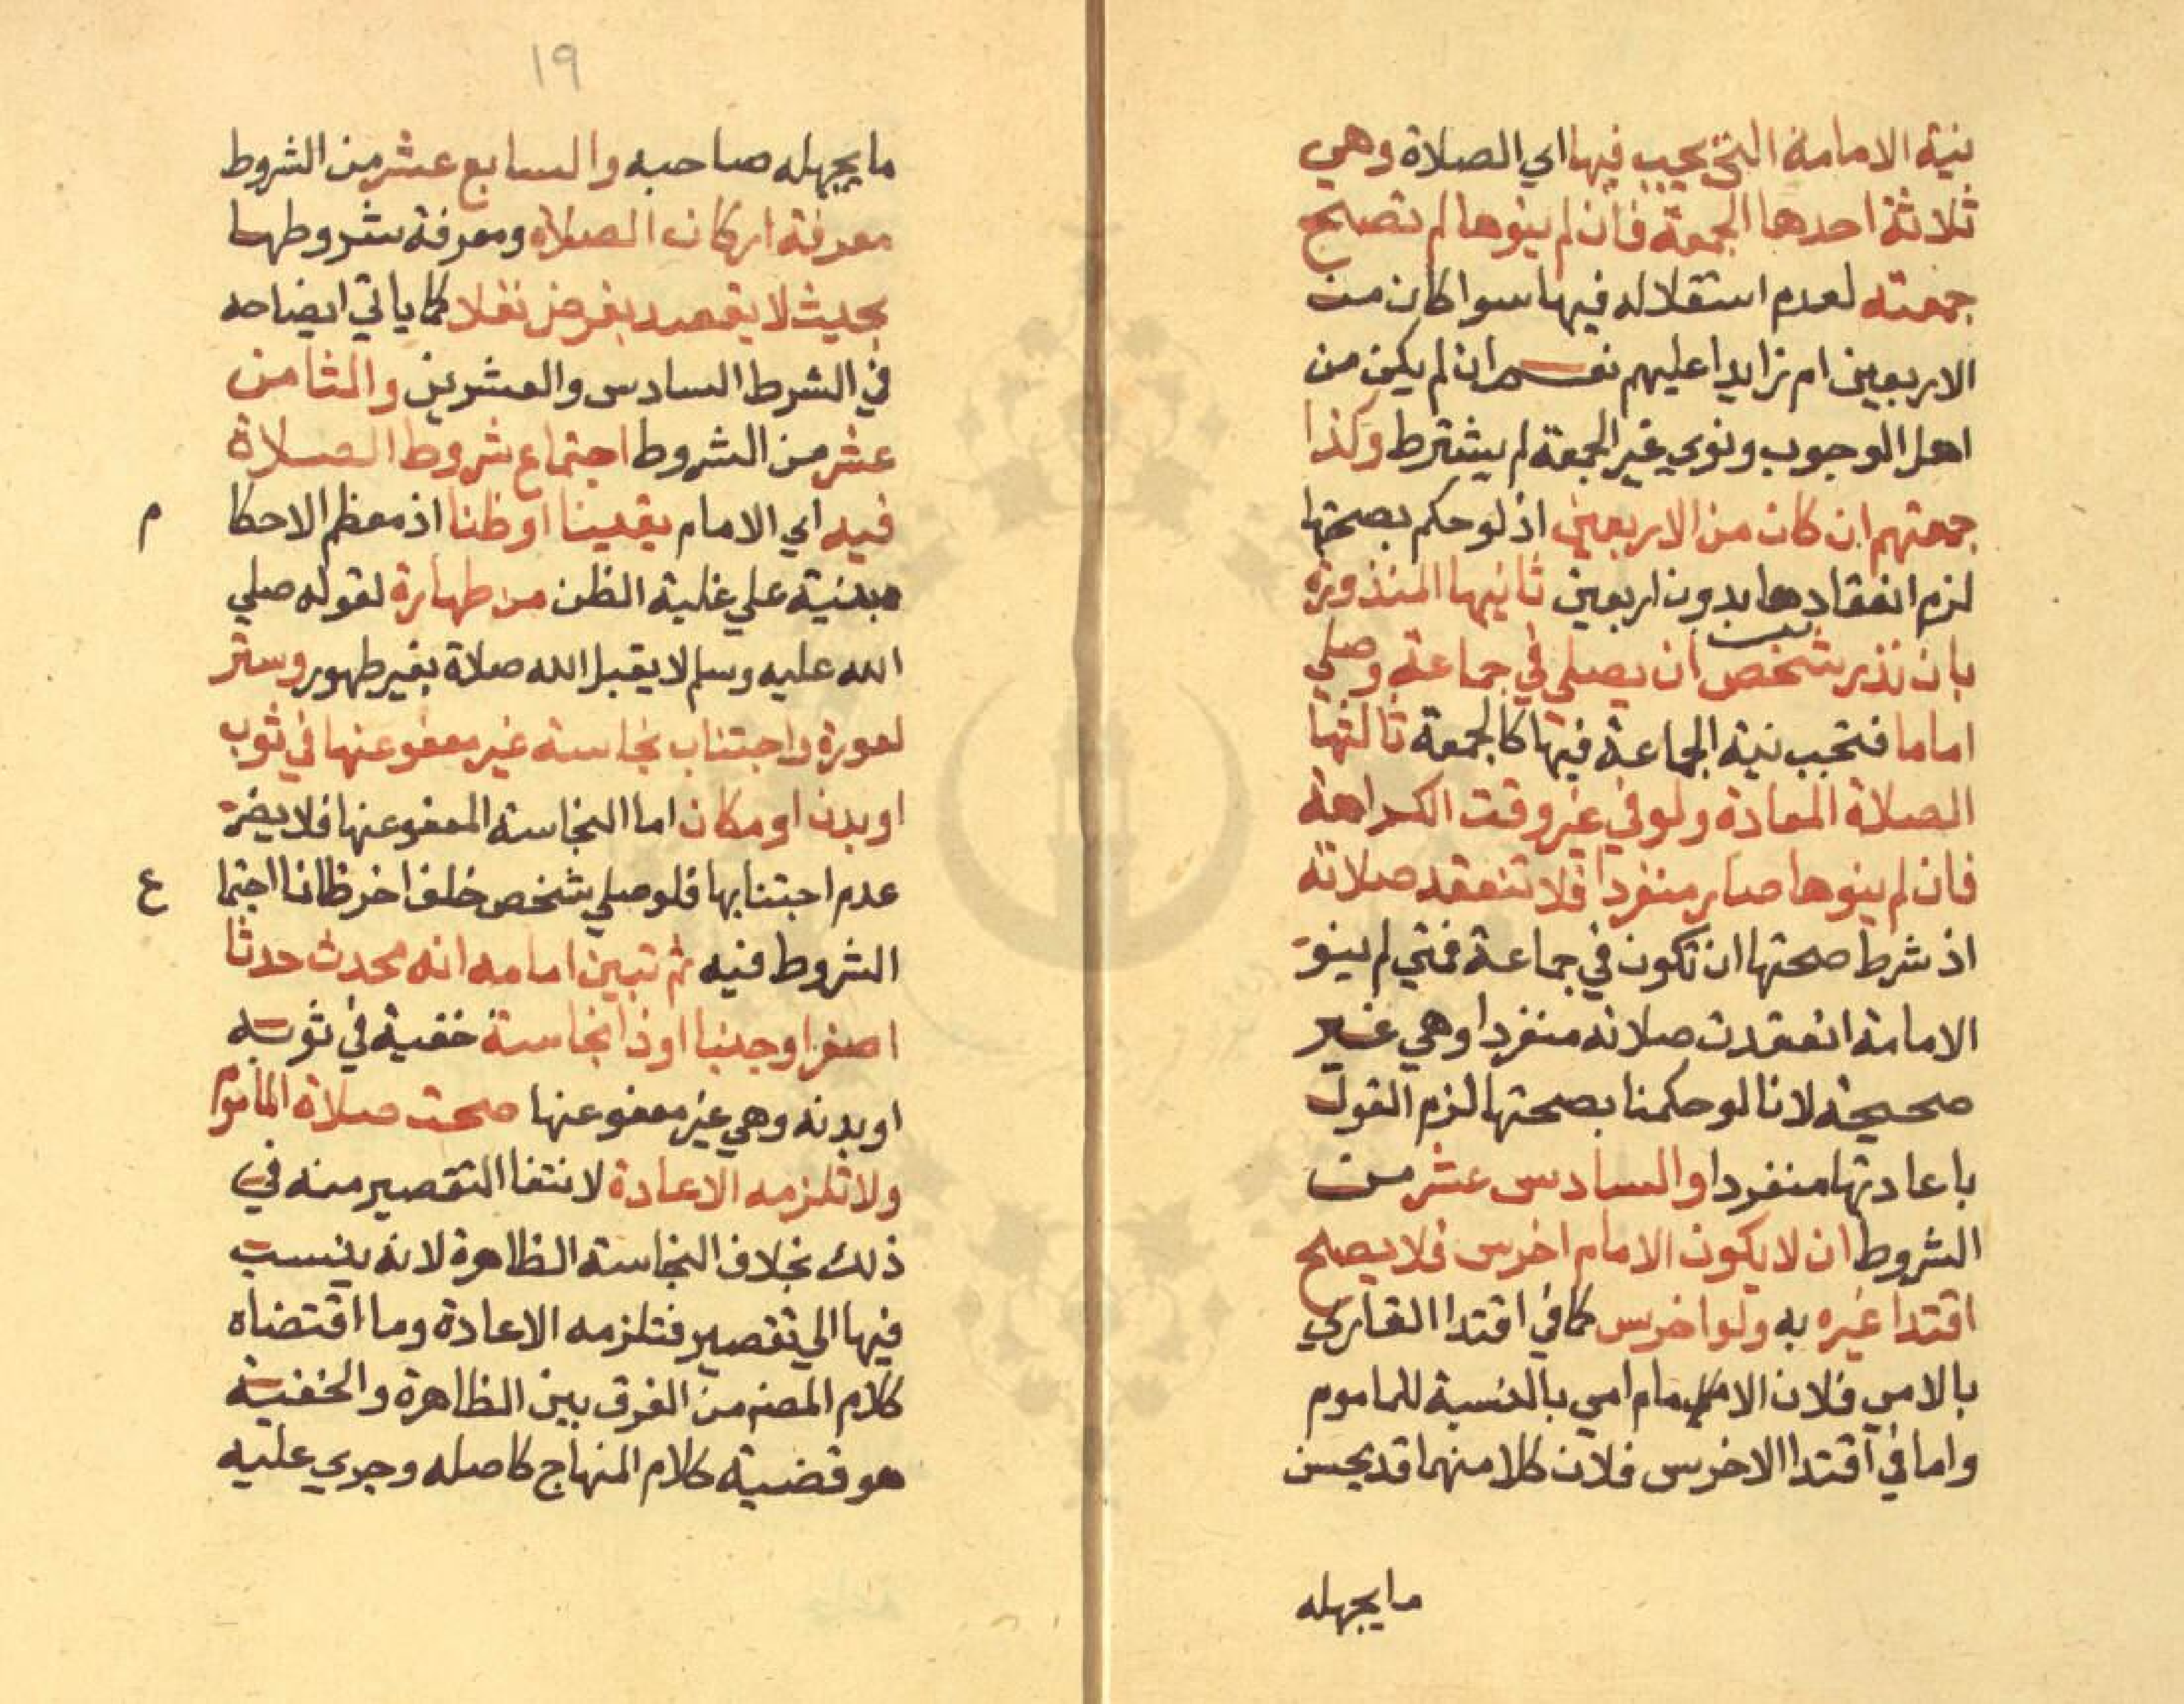 نية الامامة التي يجب فيها اي الصلاة وهي
ثلاثة احدها الجمعة فان لم ينوها لم تصح
جمعته لعدم استقلاله فيها سوا كان من
الاربعين ام زايدا عليهم نعم ان لم يكن من
اهل الوجوب ونوي غير الجمعة لم يشترط وكذا
جمعتهم ان كان من الاربعين اذ لو حكم بصحتها
لزم انعقادها بدون اربعين ثانيها المنذورة
بان نذر شخص ان يصلي في جماعة وصلي
اماما فتجب نية الجماعة فيها كالجمعة ثالثها
الصلاة المعادة ولو في غير وقت الكراهة
فان لم ينوها صار منفردا فلا تنعقد صلاته
اذ شرط صحتها ان تكون في جماعة فمتي لم ينو
الامامة انعقدت صلاته منفردا وهي غير
صحيحة لانا لو حكمنا بصحتها لزم القول
باعادتها منفردا والسادس عشر من
الشروط ان لا يكون الامام اخرس فلا يصح
اقتدا غيره به ولو اخرس كما في اقتدا القاري
بالامي فلان الامام امي بالنسبة للماموم
واما في اقتدا الاخرس فلان كلا منهما قد يحسن
ما يجهله
١٩
ما يجهله صاحبه والسابع عشر من الشروط
معرفة اركان الصلاة ومعرفة شروطها
بحيث لا يقصد بفرض نفلا كما ياتي ايضاحه
في الشرط السادس والعشرين والثامن
عشر من الشروط اجتماع شروط الصلاة
فيه اي الامام يقينا او ظنا اذ معظم الاحكا م
مبنية علي غلبة الظن من طهارة لقوله صلي
الله عليه وسلم لا يقبل الله صلاة بغير طهور وستر
لعورة واجتناب نجاسة غير معفو عنها في ثوب
او بدن او مكان اما النجاسة المعفو عنها فلا يضر
عدم اجتنابها فلو صلي شخص خلف اخر ظانا اجتما ع
الشروط فيه ثم تبين امامه انه محدث حدثا
اصغر او جنبا او ذا نجاسة خفية في ثوبه
او بدنه وهي غير معفو عنها صحت صلاة الماموم
ولا تلزمه الاعادة لانتفا التقصير منه في
ذلك بخلاف النجاسة الظاهرة لانه ينسب
فيها الي تقصير فتلزمه الاعادة وما اقتضاه
كلام المصنف من الفرق بين الظاهرة والخفية
هو قضية كلام المنهاج كاصله وجري عليه